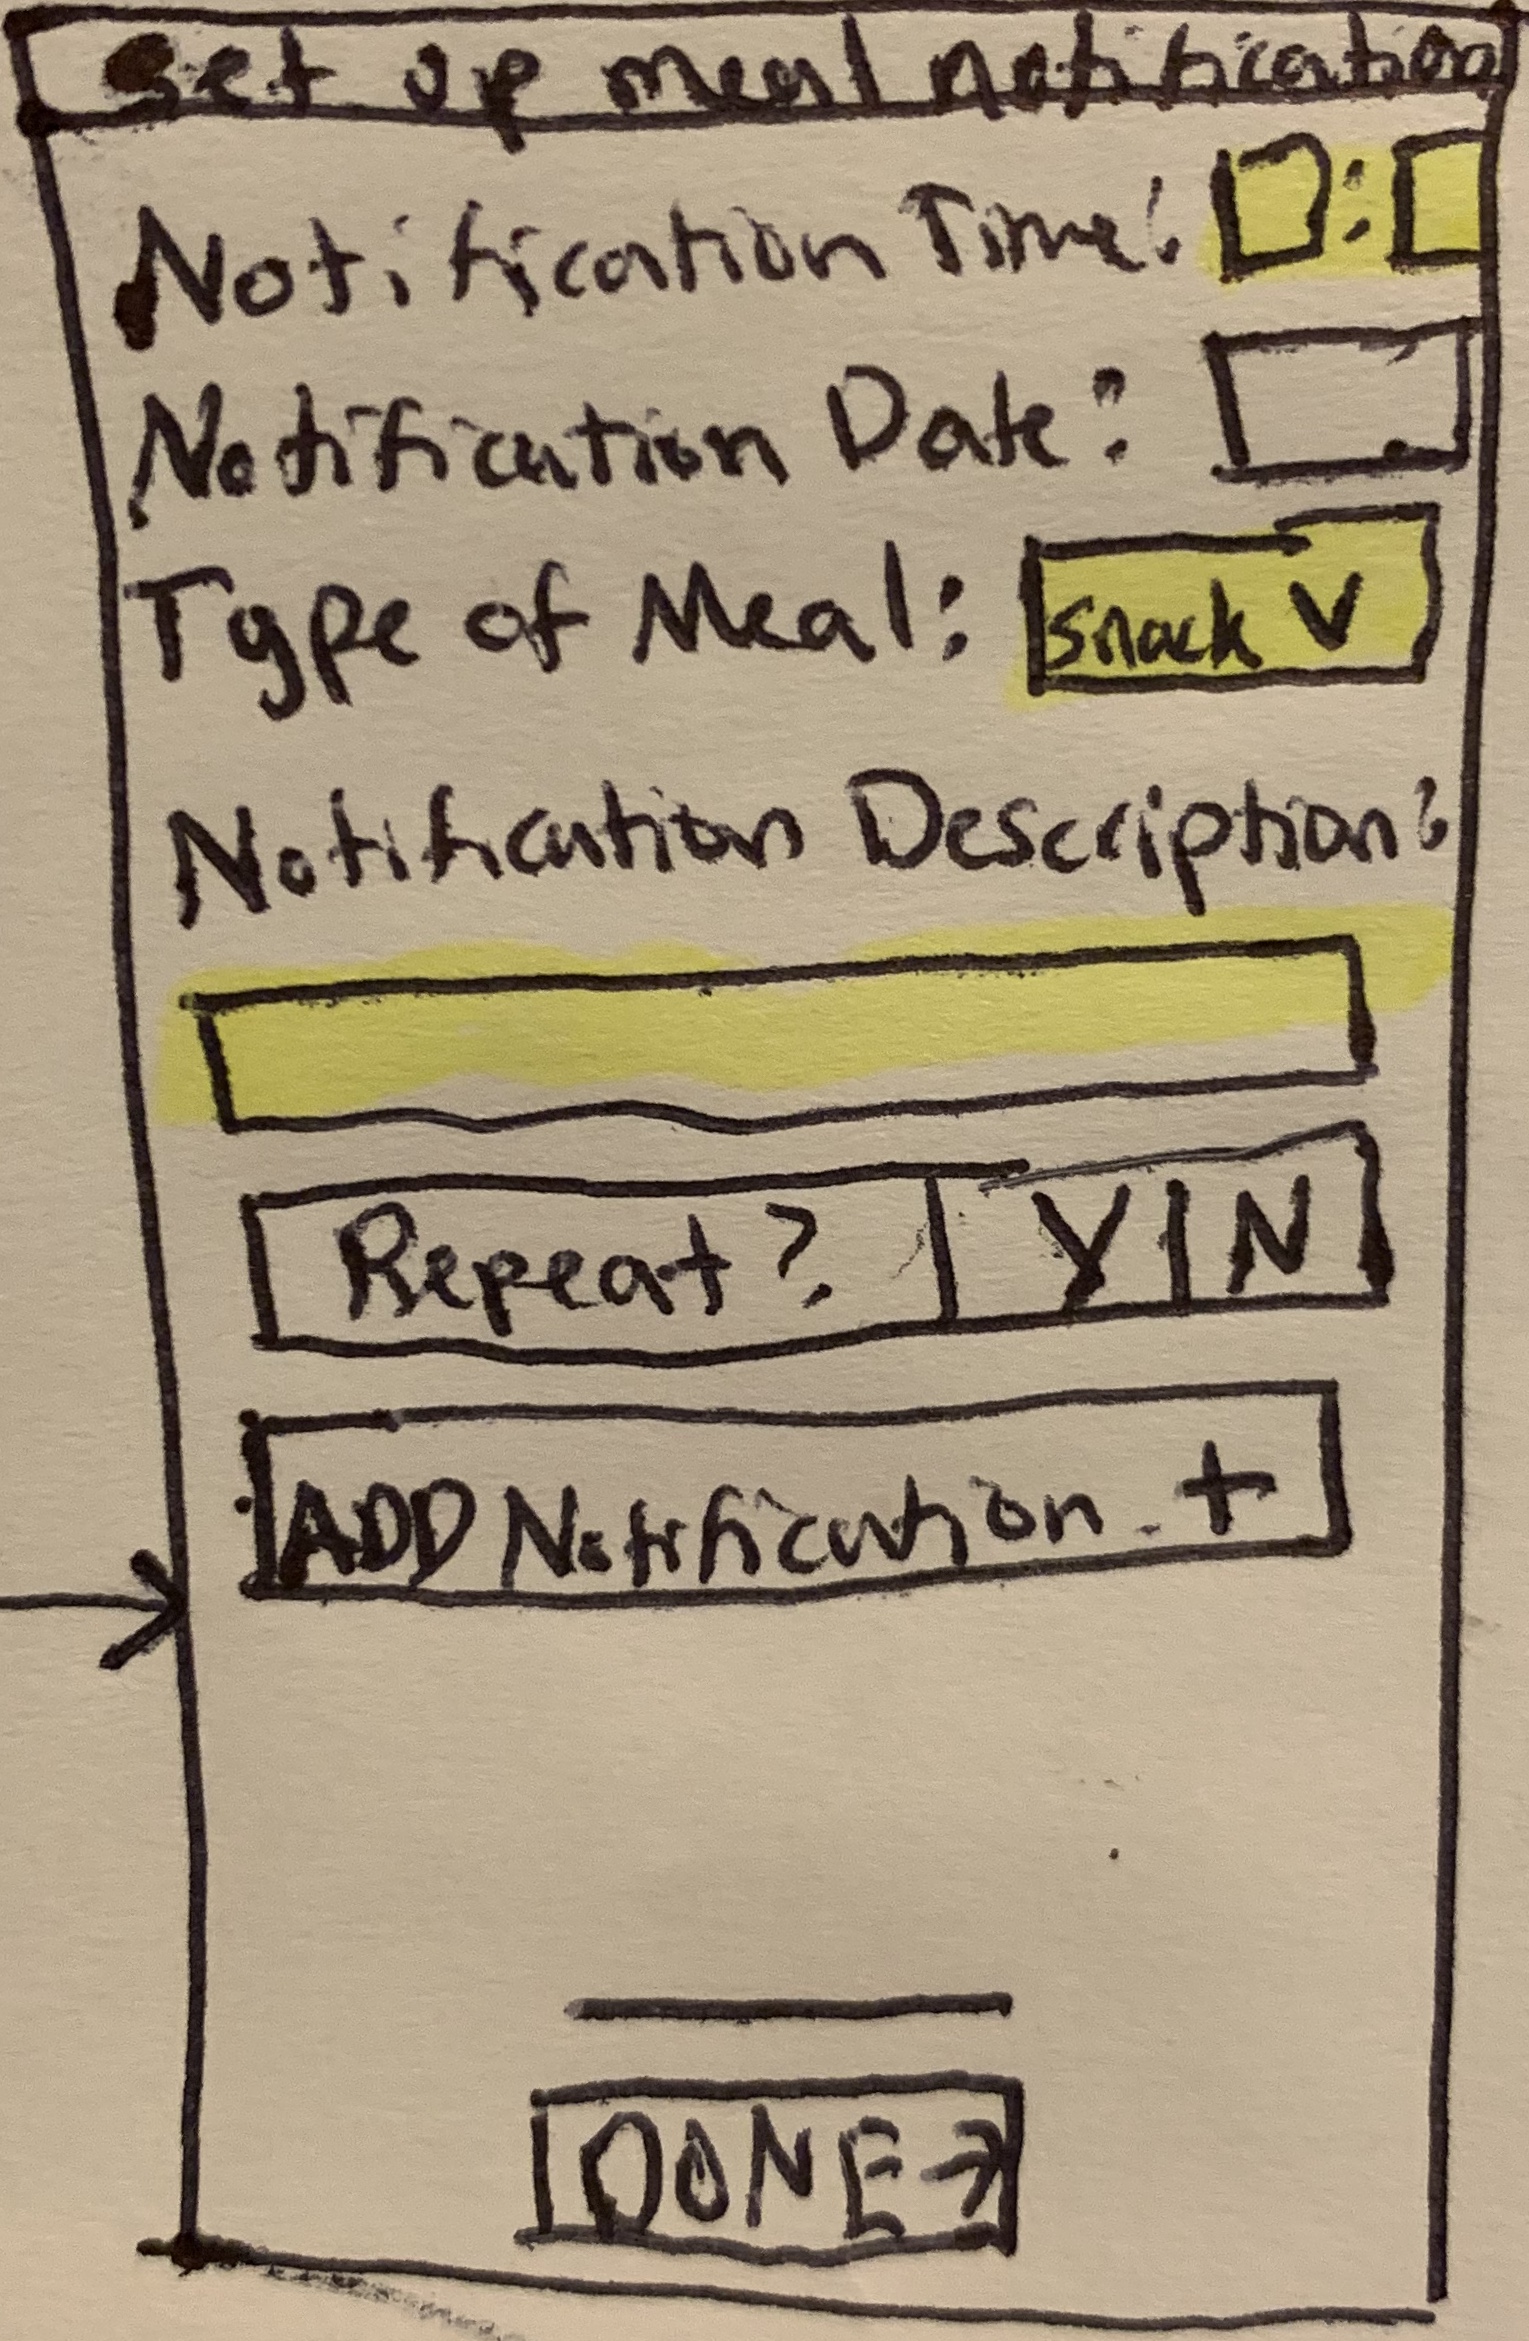 set up meal notification
Notification Time: :
Notification Date:
Type of Meal: snack V
Notification Description:
Repeat? Y N
ADD Notification +
DONE →